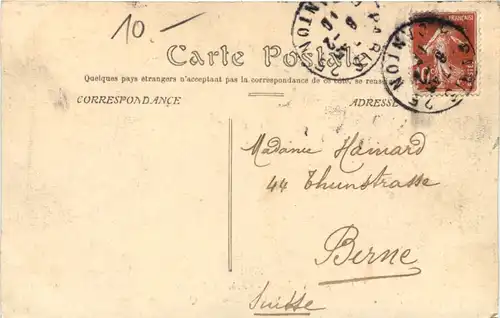 10-
Carte Postale
Quelques pays étrangers n'acceptant pas la correspondance de ce côté, se
CORRESPONDANCE
ADRESSE
Madame Hamard
44 Thunstrasse
Berne
Suisse